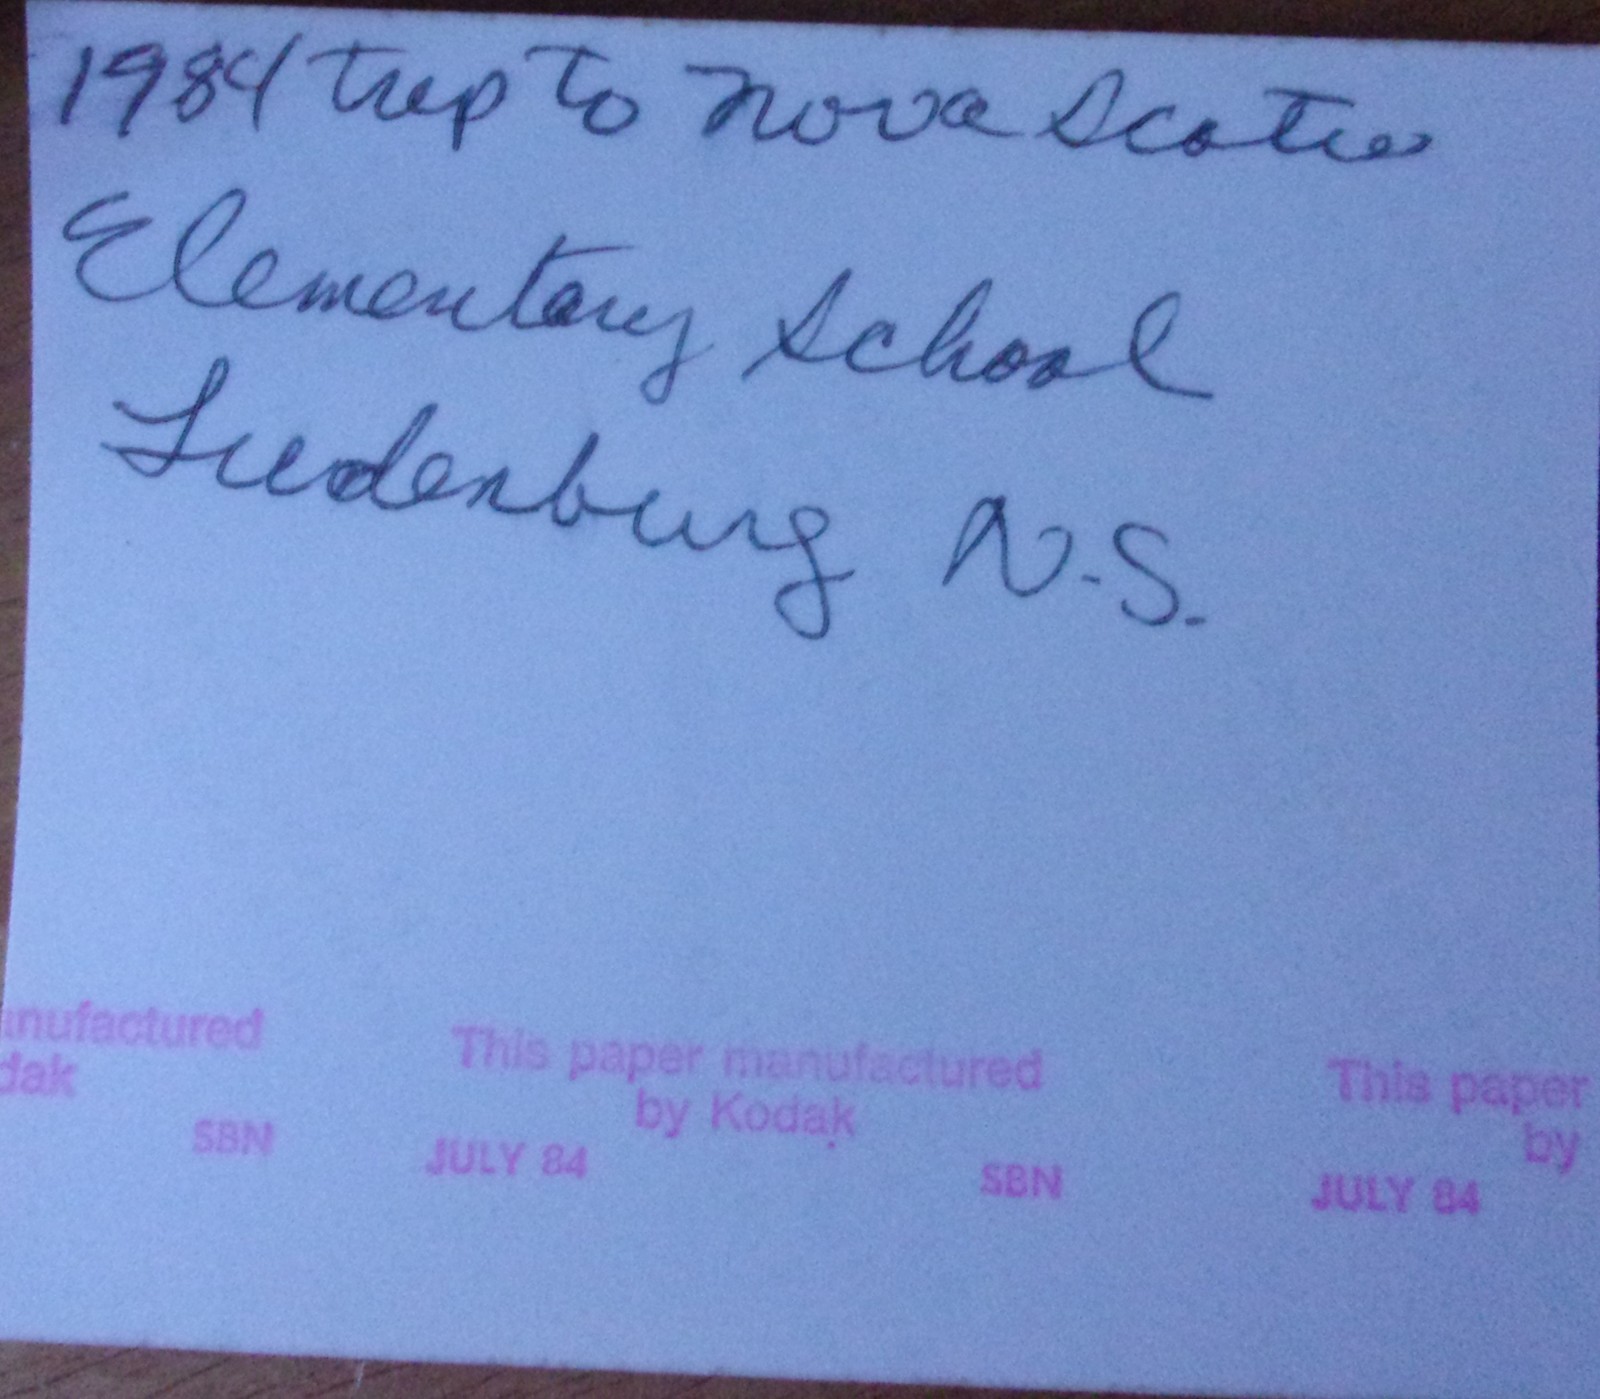 1984 trip to Nova Scotia
Elementary School
Ludenburg N.S.
anufactured This paper manufactured This paper
dak by Kodak by
SBN JULY 84 SBN JULY 84